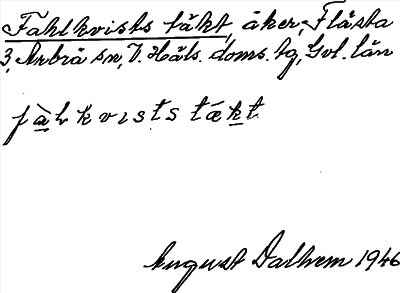 Fahlkvists täkt, åker, Flästa
3, Arbrå sn, V. Häls. doms. tg, Gvl. län
fàlkvists tækt
August Dalhem 1946